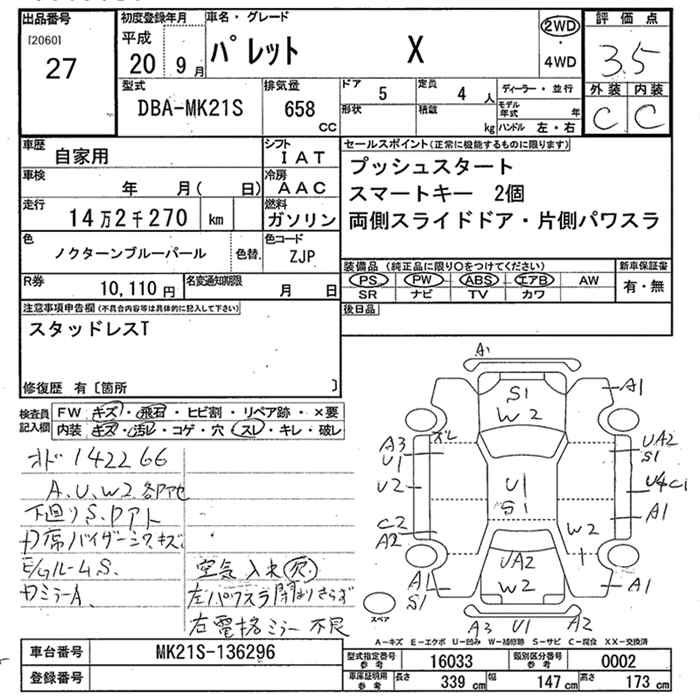 出品番号
[2060]
27
初度登録年月
平成
20 9月
車名・グレード
パレット X
2WD
・
4WD
評価点
3.5
外装 内装
C C
型式
DBA-MK21S
排気量
658
cc
ドア 5
定員 4 人
形状
積載 kg
ディーラー・並行
モデル年式 年
ハンドル 左・右
車歴
自家用
シフト
IAT
車検
年 月( 日)
冷房
AAC
走行
14万2千270 km
燃料
ガソリン
色
ノクターンブルーパール
色替
色コード
ZJP
R券
10,110 円
名変通知期限
月 日
セールスポイント(正常に機能するものに限ります)
プッシュスタート
スマートキー 2個
両側スライドドア・片側パワスラ
装備品(純正品に限り○をつけてください)
PS PW ABS エアB AW
SR ナビ TV カワ
新車保証書
有・無
後日品
注意事項申告欄(不具合内容等は具体的に記入して下さい)
スタッドレスT
修復歴 有〔箇所 〕
検査員記入欄
FW キズ・飛石・ヒビ割・リペア跡・×要
内装 キズ・汚レ・コゲ・穴・スレ・キレ・破レ
オド142266
A.U.W2.各部アセ
下廻りS.Pアト
D席バイザーミラーキズ
E/GルームS.
DミラーA.
空気入 欠.
左パワスラ閉まりきらず
右電格ミラー不良
A1
S1
W2
A1
A3
U1
ズレ
U2
C2
A2
A1
S1
U1
S1
UA2
S1
U4C1
A1
W2
UA2
W2
A1
A3 U1 A2
スペア
A-キズ E-エクボ U-凹み W-補修跡 S-サビ C-腐食 XX-交換済
車台番号
MK21S-136296
登録番号
型式指定番号 参考
16033
類別区分番号 参考
0002
車庫証明用 参考
長さ 339 cm
幅 147 cm
高さ 173 cm